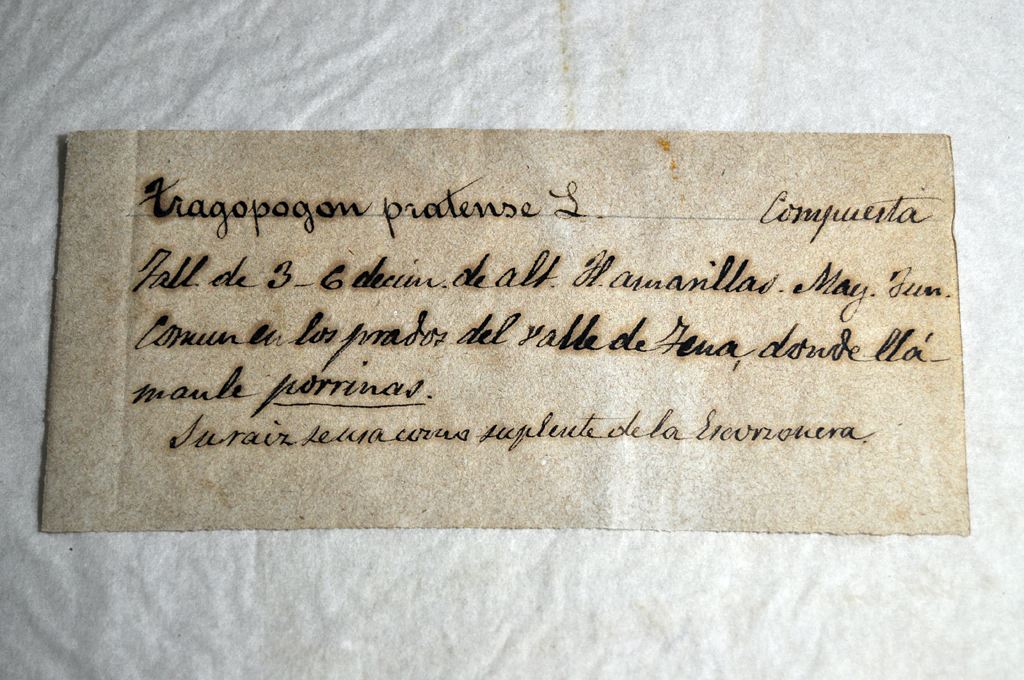 Tragopogon pratense L. Compuesta
Tall. de 3-6 decim. de alt. Fl. amarillas. May. Jun.
Comun en los prados del valle de Tena, donde llá-
manle porrinas.
Su raiz se usa como suplente de la Escorzonera.